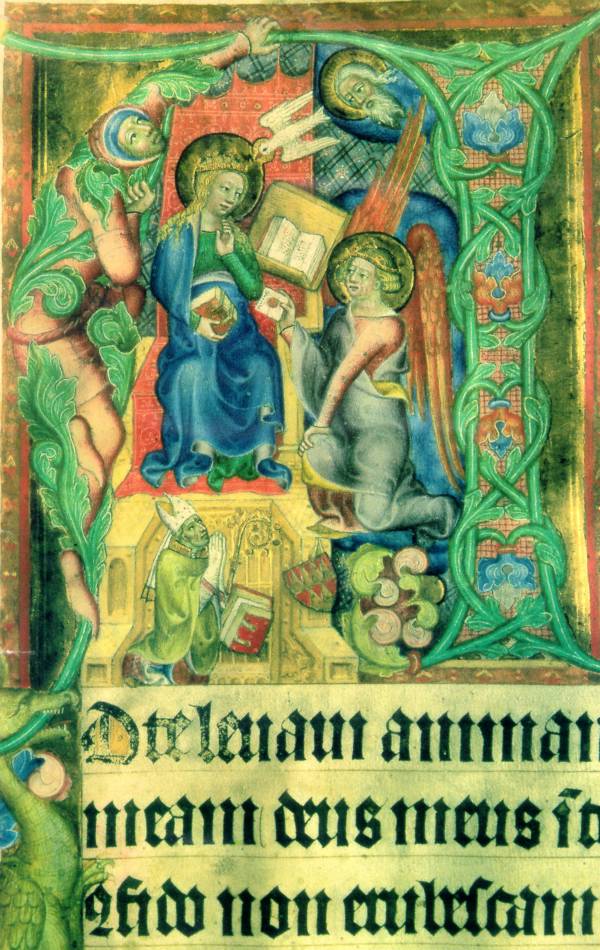 A
Dte leuaui animam
meam deus meus ī te
ꝯfido non erubescam